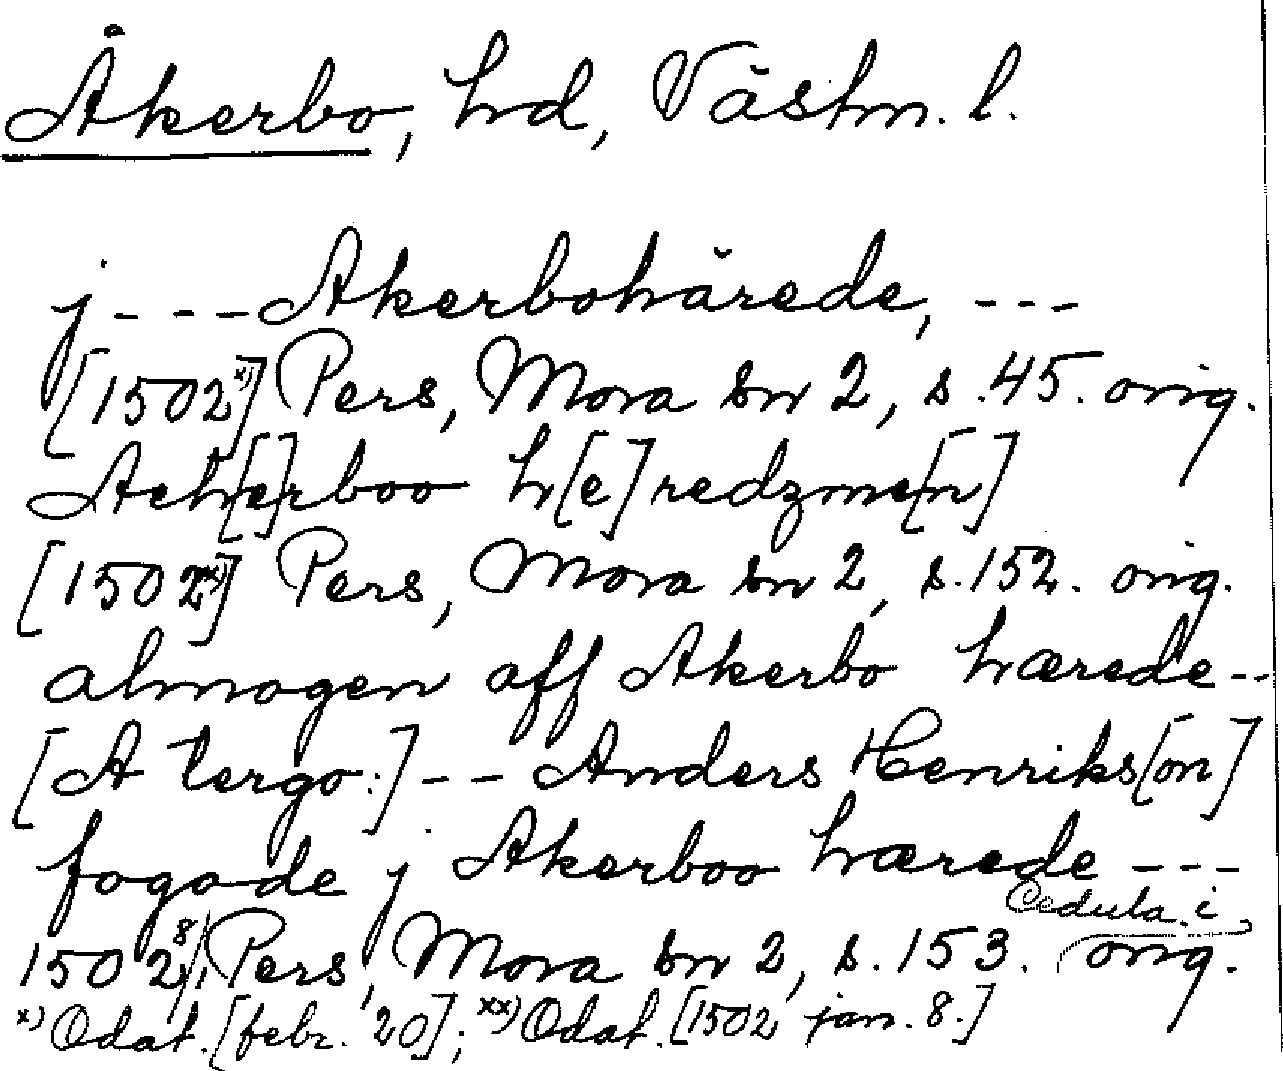 Åkerbo, hd, Västm. l.
j - - - Akerbohärede, - - -
[1502 x)] Pers, Mora bn 2, s. 45. orig.
Ack[e]rboo h[e]redzme[n]
[1502 xx)] Pers, Mora bn 2, s. 152. orig.
almogen aff Akerbo hærede - -
[A tergo:] - - Anders Henriks[on]
fogade j Akerboo hærede - - -
Cedula i
1502 8/1 Pers, Mora bn 2, s. 153. orig.
x) Odat. [febr. 20]; xx) Odat. [1502 jan. 8.]